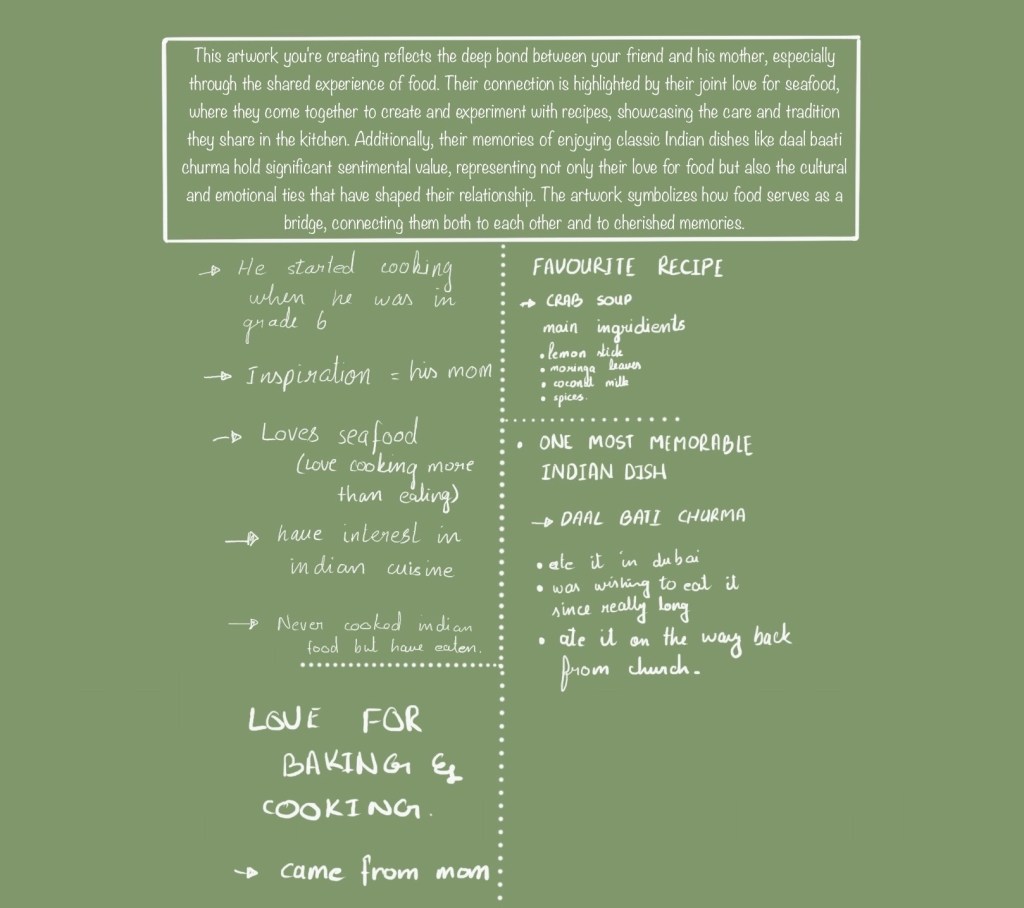 This artwork you're creating reflects the deep bond between your friend and his mother, especially
through the shared experience of food. Their connection is highlighted by their joint love for seafood,
where they come together to create and experiment with recipes, showcasing the care and tradition
they share in the kitchen. Additionally, their memories of enjoying classic Indian dishes like daal baati
churma hold significant sentimental value, representing not only their love for food but also the cultural
and emotional ties that have shaped their relationship. The artwork symbolizes how food serves as a
bridge, connecting them both to each other and to cherished memories.
→ He started cooking
when he was in
grade 6
→ Inspiration = his mom
→ Loves seafood
(love cooking more
than eating)
→ have interest in
indian cuisine
→ Never cooked indian
food but have eaten.
LOVE FOR
BAKING &
COOKING.
→ came from mom
FAVOURITE RECIPE
→ CRAB SOUP
main ingridients
• lemon stick
• moringa leaves
• coconut milk
• spices.
• ONE MOST MEMORABLE
INDIAN DISH
→ DAAL BATI CHURMA
• ate it in dubai
• was wishing to eat it
since really long
• ate it on the way back
from church.